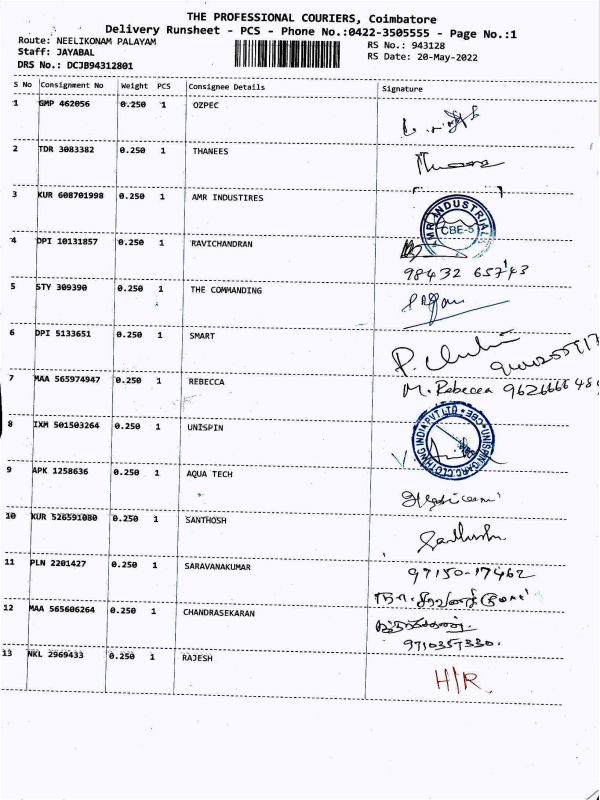 THE PROFESSIONAL COURIERS, Coimbatore
Delivery Runsheet - PCS - Phone No.:0422-3505555 - Page No.:1
Route: NEELIKONAM PALAYAM RS No.: 943128
Staff: JAYABAL RS Date: 20-May-2022
DRS No.: DCJB94312801
S No Consignment No Weight PCS Consignee Details Signature
1 GMP 462056 0.250 1 OZPEC
2 TDR 3083382 0.250 1 THANEES
3 KUR 608701998 0.250 1 AMR INDUSTIRES
AMR INDUSTRIALS CBE-5
4 DPI 10131857 0.250 1 RAVICHANDRAN
98432 65743
5 STY 309390 0.250 1 THE COMMANDING
6 DPI 5133651 0.250 1 SMART
7 MAA 565974947 0.250 1 REBECCA M. Rebecca
8 IXM 501503264 0.250 1 UNISPIN
UNISPIN CLOTHING INDIA PVT LTD CBE
9 APK 1258636 0.250 1 AQUA TECH
10 KUR 526591080 0.250 1 SANTHOSH Santhosh
11 PLN 2201427 0.250 1 SARAVANAKUMAR 97150-17462
12 MAA 565606264 0.250 1 CHANDRASEKARAN
9710357330.
13 NKL 2969433 0.250 1 RAJESH
H/R